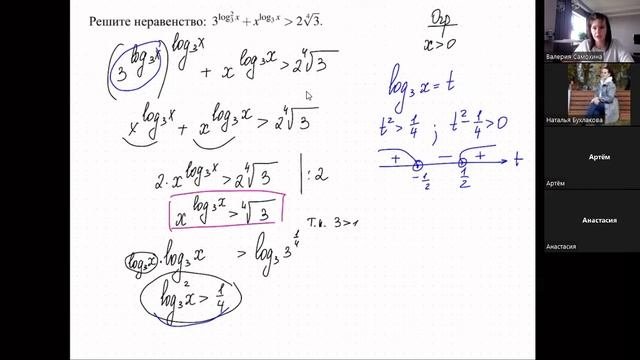 Решите неравенство: 3^{log_3^2 x} + x^{log_3 x} > 2\sqrt[4]{3}.
Огр
x>0
(3^{log_3 x})^{log_3 x} + x^{log_3 x} > 2\sqrt[4]{3}
x^{log_3 x} + x^{log_3 x} > 2\sqrt[4]{3}
2·x^{log_3 x} > 2\sqrt[4]{3} | :2
x^{log_3 x} > \sqrt[4]{3}
log_3 x · log_3 x > log_3 3^{1/4} т.к. 3>1
log_3^2 x > 1/4
log_3 x = t
t^2 > 1/4 ; t^2 - 1/4 > 0
+ − + t
-1/2 1/2
Валерия Самохина
Наталья Бухлакова
Артём
Артём
Анастасия
Анастасия